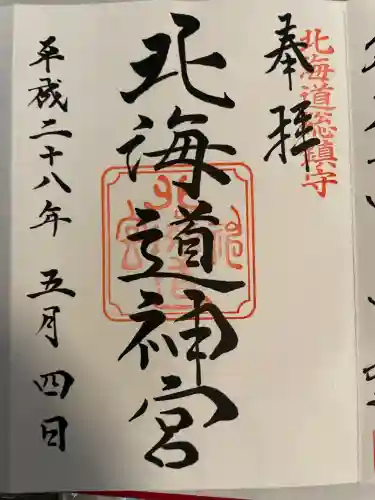 奉拝
北海道総鎮守
北海道神宮
平成二十八年五月四日